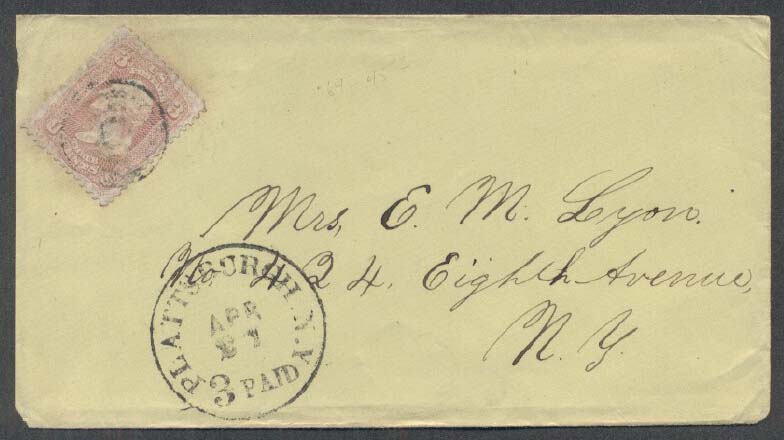 3 3
Mrs. E. M. Lyon.
No 424. Eighth Avenue,
N. Y.
PLATTSBURGH. N.Y.
APR
3 PAID